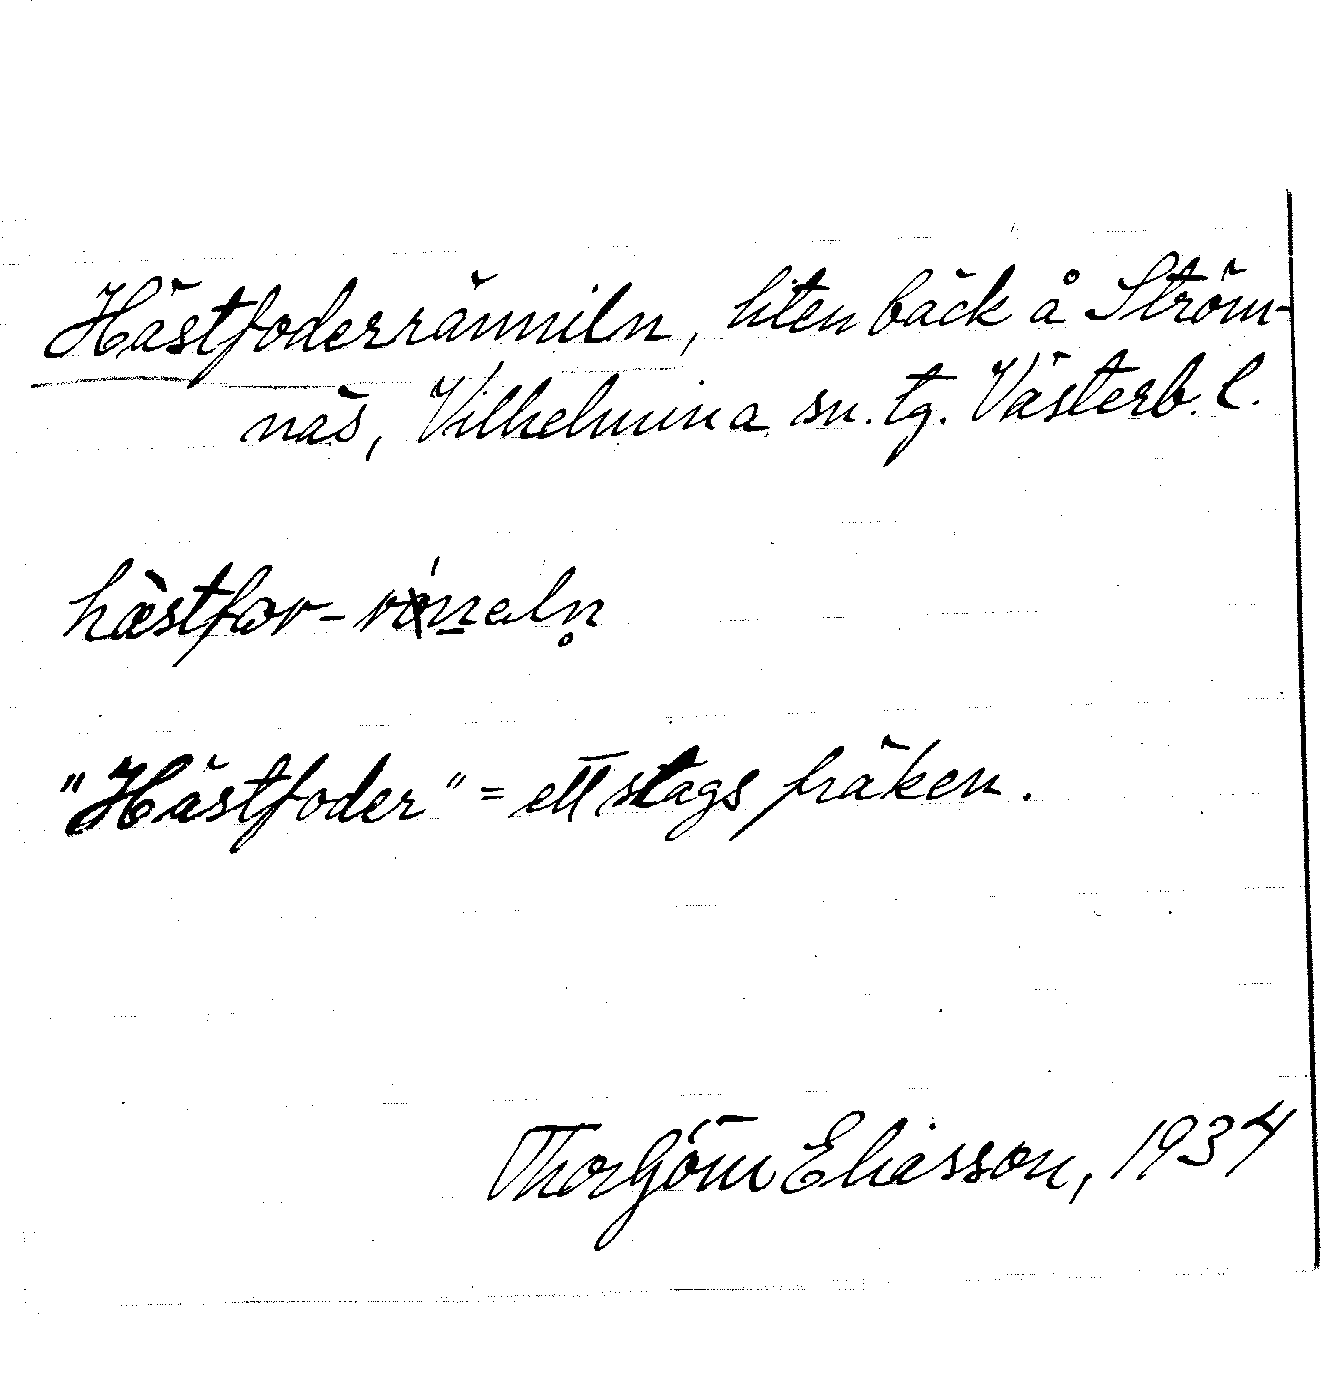 Hästfoderränniln, liten bäck å Ström-
näs, Vilhelmina sn. tg. Västerb. l.
"Hästfoder" = ett slags fräken.
Eliasson, 1934